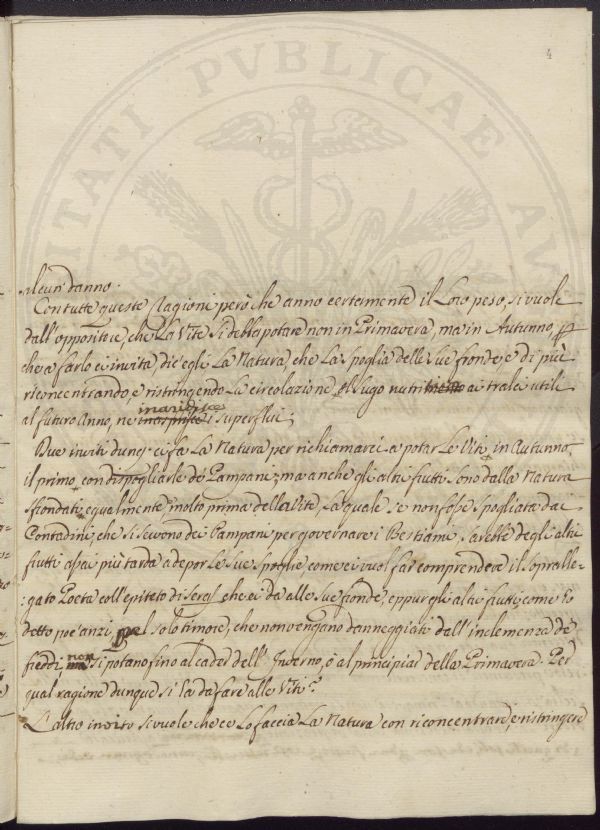 4
alcun danno.
Con tutte queste Ragioni però che anno certamente il Loro peso, si vuole
dall'opposito, che La Vite si debba potare non in Primavera, ma in Autunno,
che a farlo ci invita dic'egli La Natura, che La spoglia delle sue fronde, e di più
riconcentrando e ristringendo La circolazione, il sugo ai tralci utili
al futuro Anno, ne inaridisce i superflui;
Due inviti dunq. ci fa La Natura per richiamarci a potar Le Viti in Autunno,
il primo, con dispogliarle de' Pampani; ma anche gli altri frutti sono dalla Natura
sfrondati egualmente, molto prima della Vite, La quale se non fosse spogliata dai
Contadini, che si servono dei Pampani per governare i Bestiami, sarebbe degli altri
frutti assai più tarda a depor Le sue spoglie, come ci vuol far comprendere il sopralle-
:gato Poeta coll'epiteto di che ci da alle sue fronde, eppur gli altri frutti, come ho
detto poc'anzi, pel solo timore, che non vengano danneggiati dall'inclemenza de'
freddi non si potano fino al cader dell'Inverno, o al principiar della Primavera. Per
qual ragione dunque si ha da fare alle Viti?
L'altro invito si vuole che ce Lo faccia La Natura con riconcentrare, e ristringere